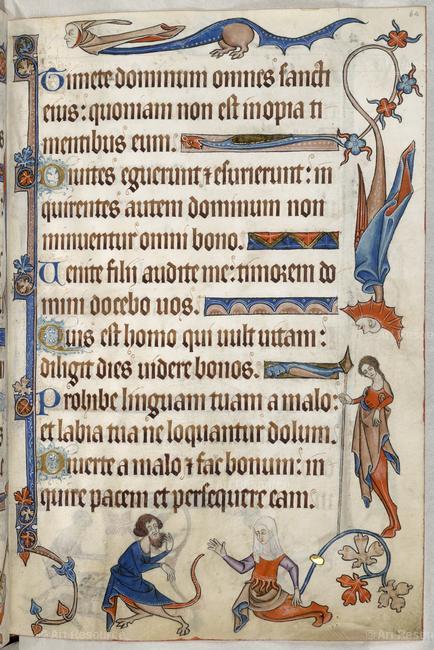 Timete dominum omnes sancti
eius: quoniam non est inopia ti
mentibus eum.
Diuites eguerunt ⁊ esurierunt: in
quirentes autem dominum non
minuentur omni bono.
Uenite filii audite me: timorem do
mini docebo uos.
Quis est homo qui uult uitam:
diligit dies uidere bonos.
Prohibe linguam tuam a malo:
et labia tua ne loquantur dolum.
Diuerte a malo ⁊ fac bonum: in
quire pacem et persequere eam.
© Art Resource
© Art Resource